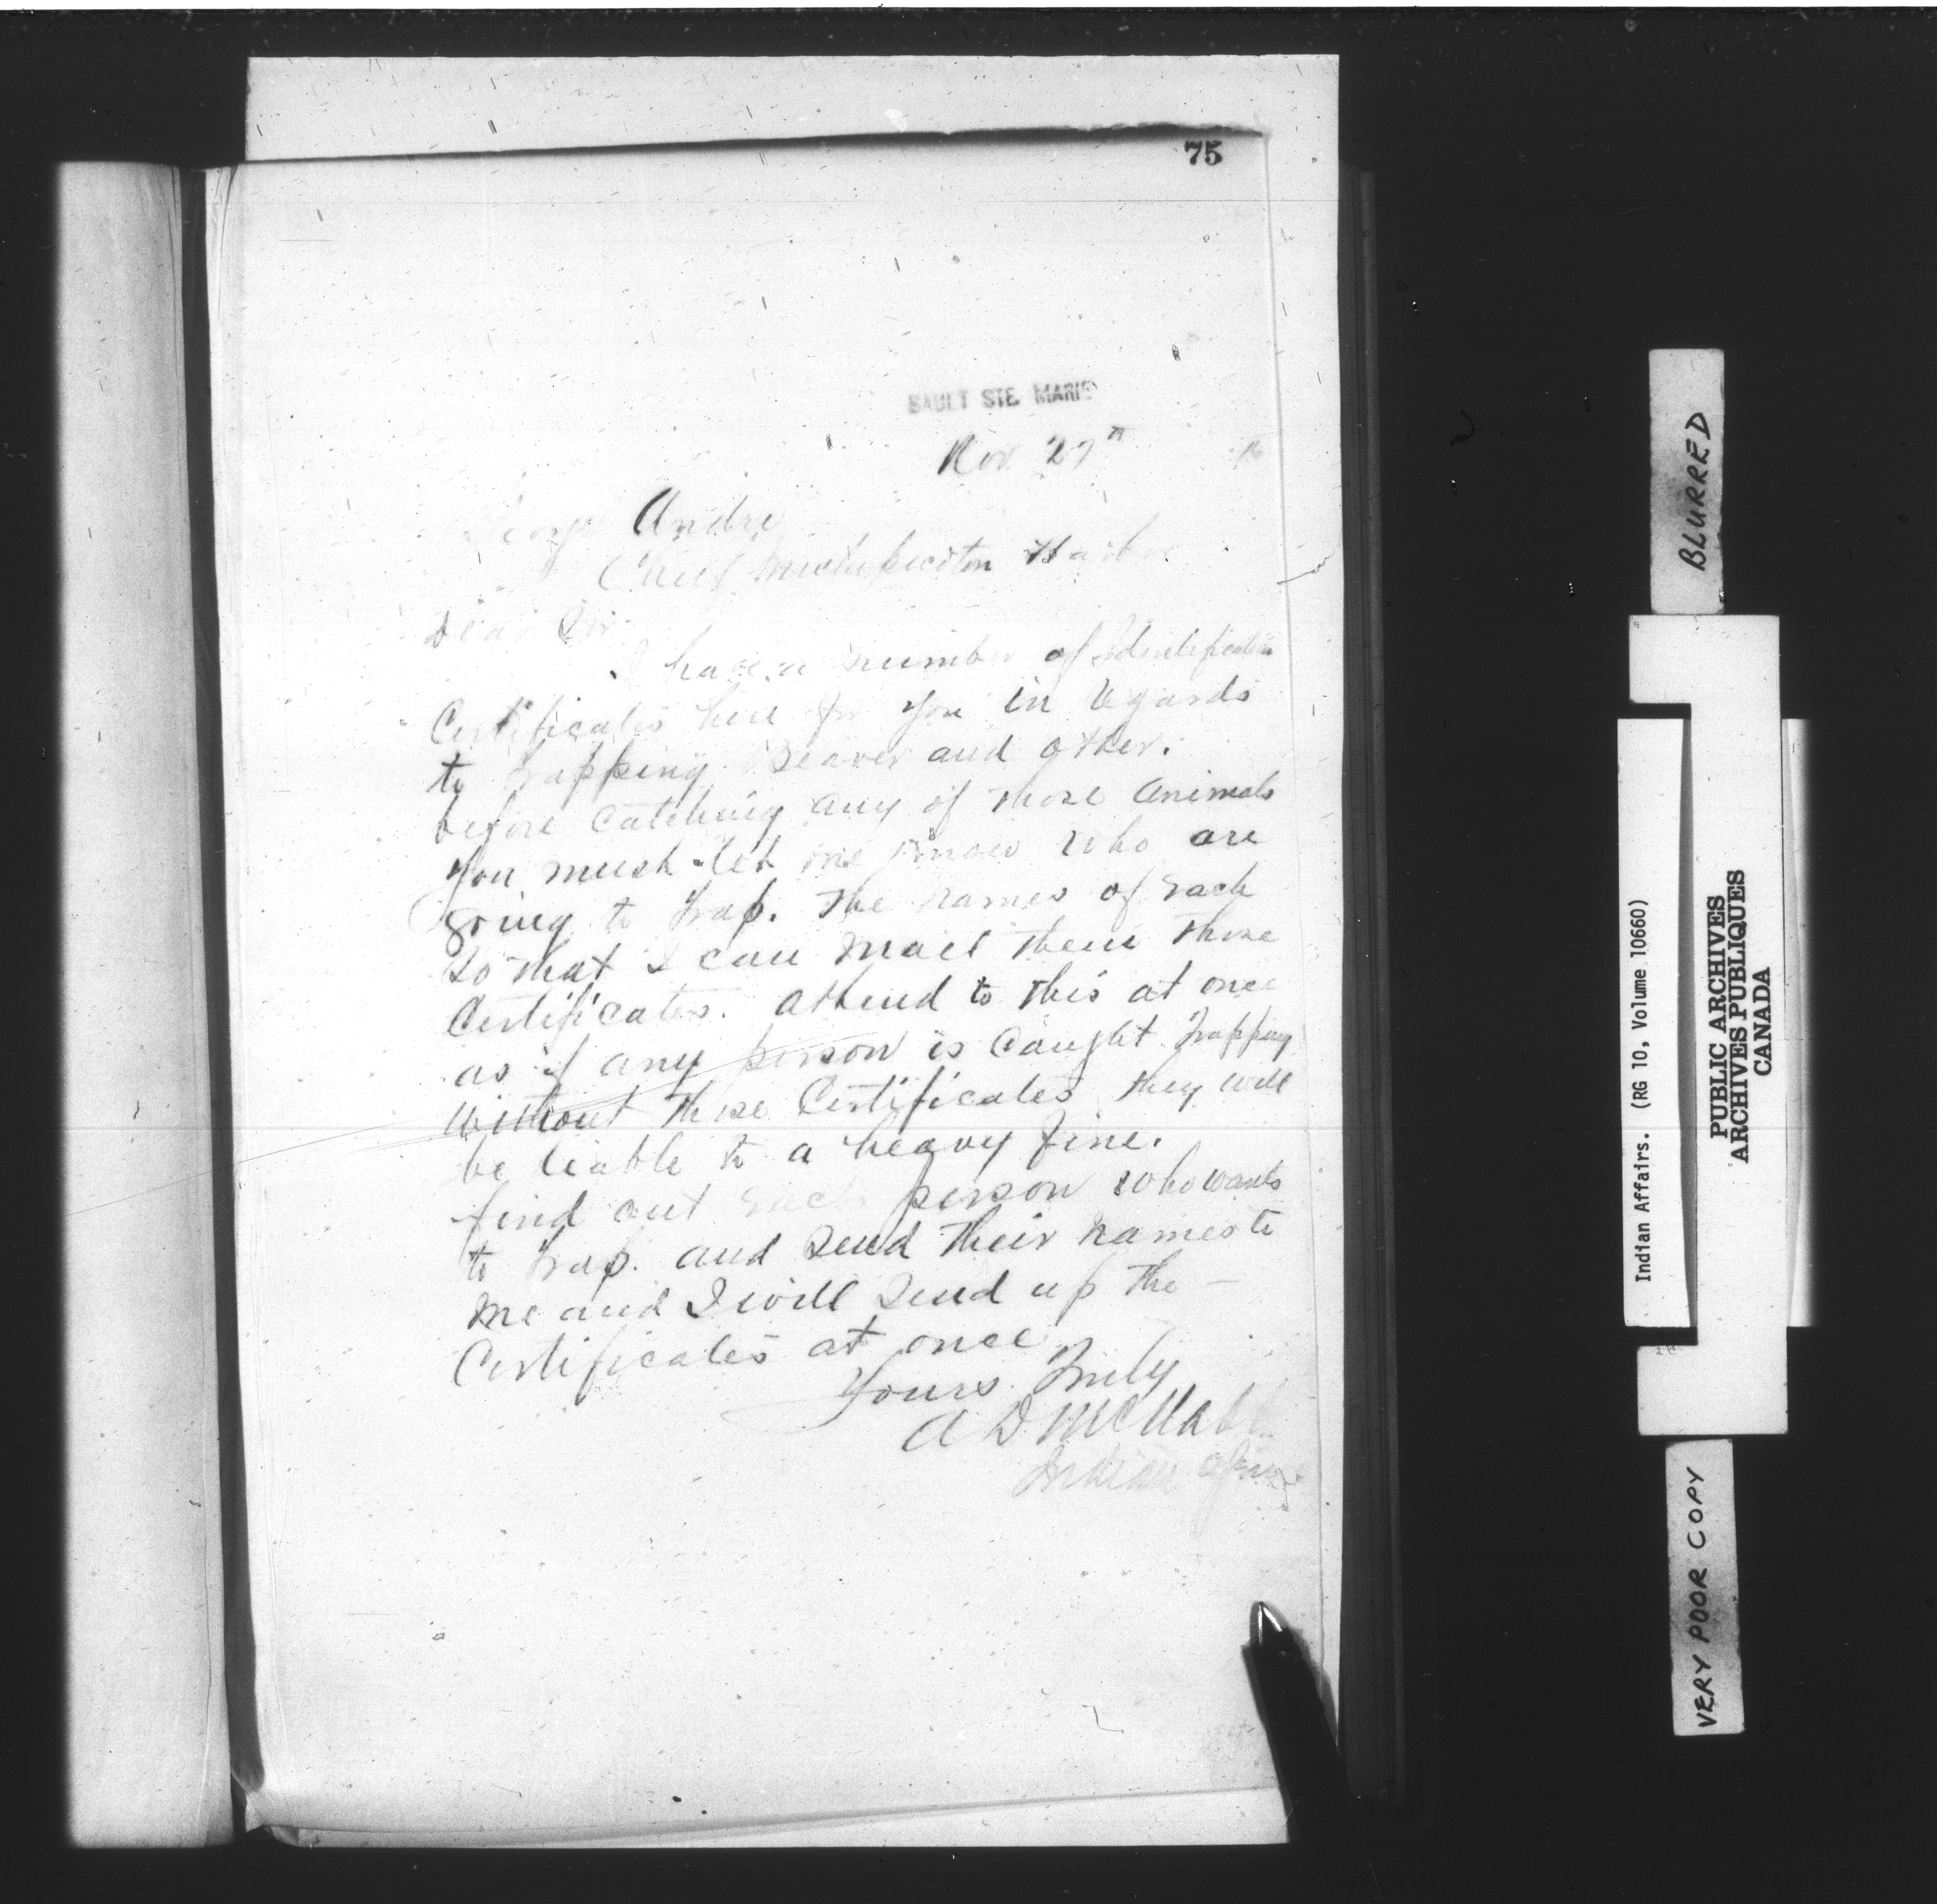 75
SAULT STE. MARIE
Nov 27th 16
Andre
Chief Michipicoton Harbor
Dear Sir
I have a number of Identification
Certificates here for you in regards
to trapping Beaver and other.
before catching any of those animals
you must let me know who are
going to trap. The names of each
so that I can mail them those
Certificates. attend to this at once
as if any person is caught trapping
without these Certificates they will
be liable to a heavy fine.
find out each person who wants
to trap. and send their names to
me and I will send up the
Certificates at once
Yours Truly
A D McNabb
Indian Agent
BLURRED
Indian Affairs. (RG 10, Volume 10660)
PUBLIC ARCHIVES
ARCHIVES PUBLIQUES
CANADA
VERY POOR COPY